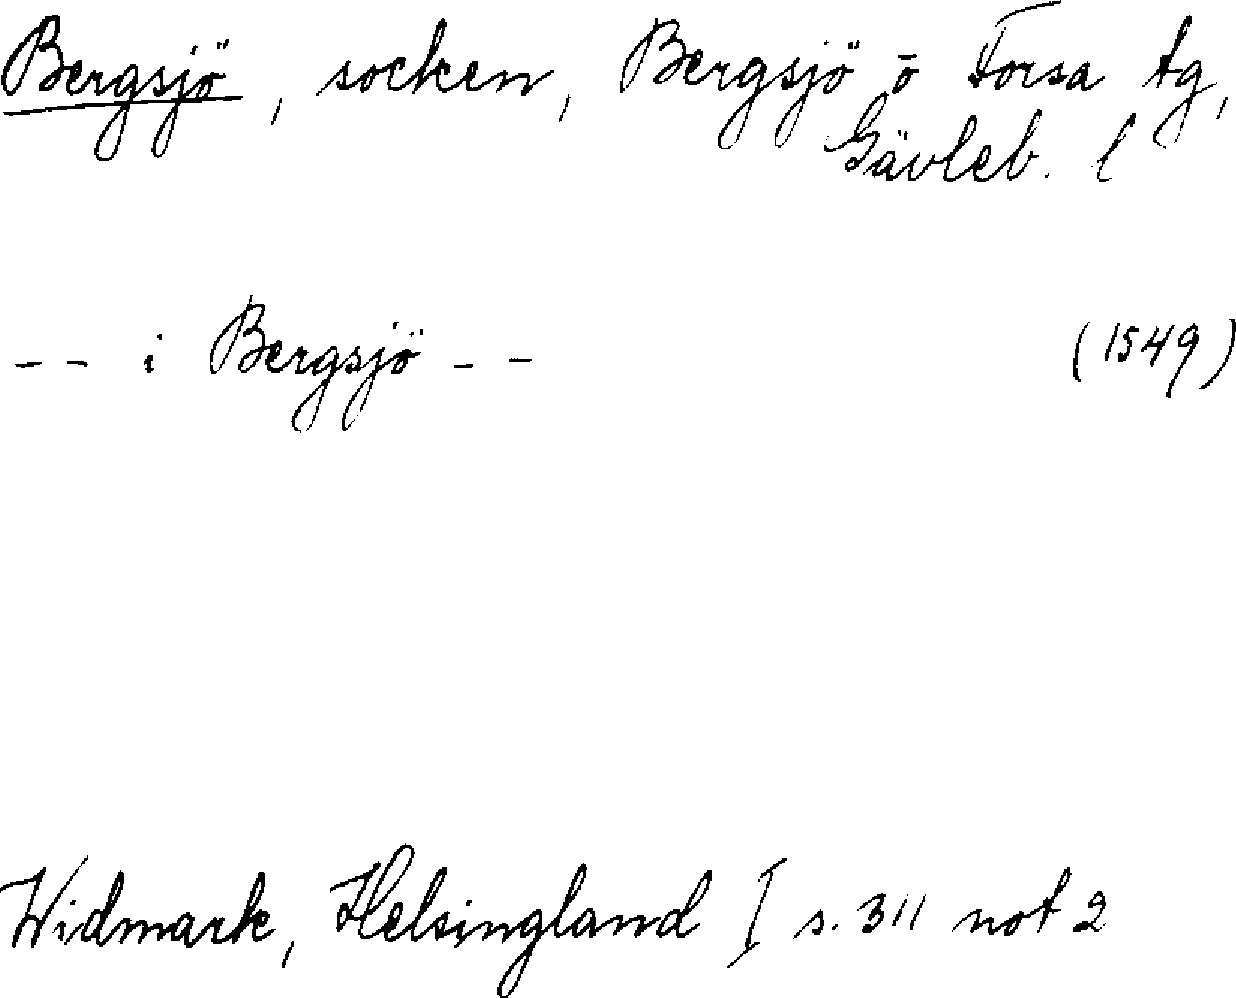 Bergsjö, socken, Bergsjö o Forsa tg,
Gävleb. l
-- i Bergsjö -- (1549)
Widmark, Helsingland I s. 311 not 2